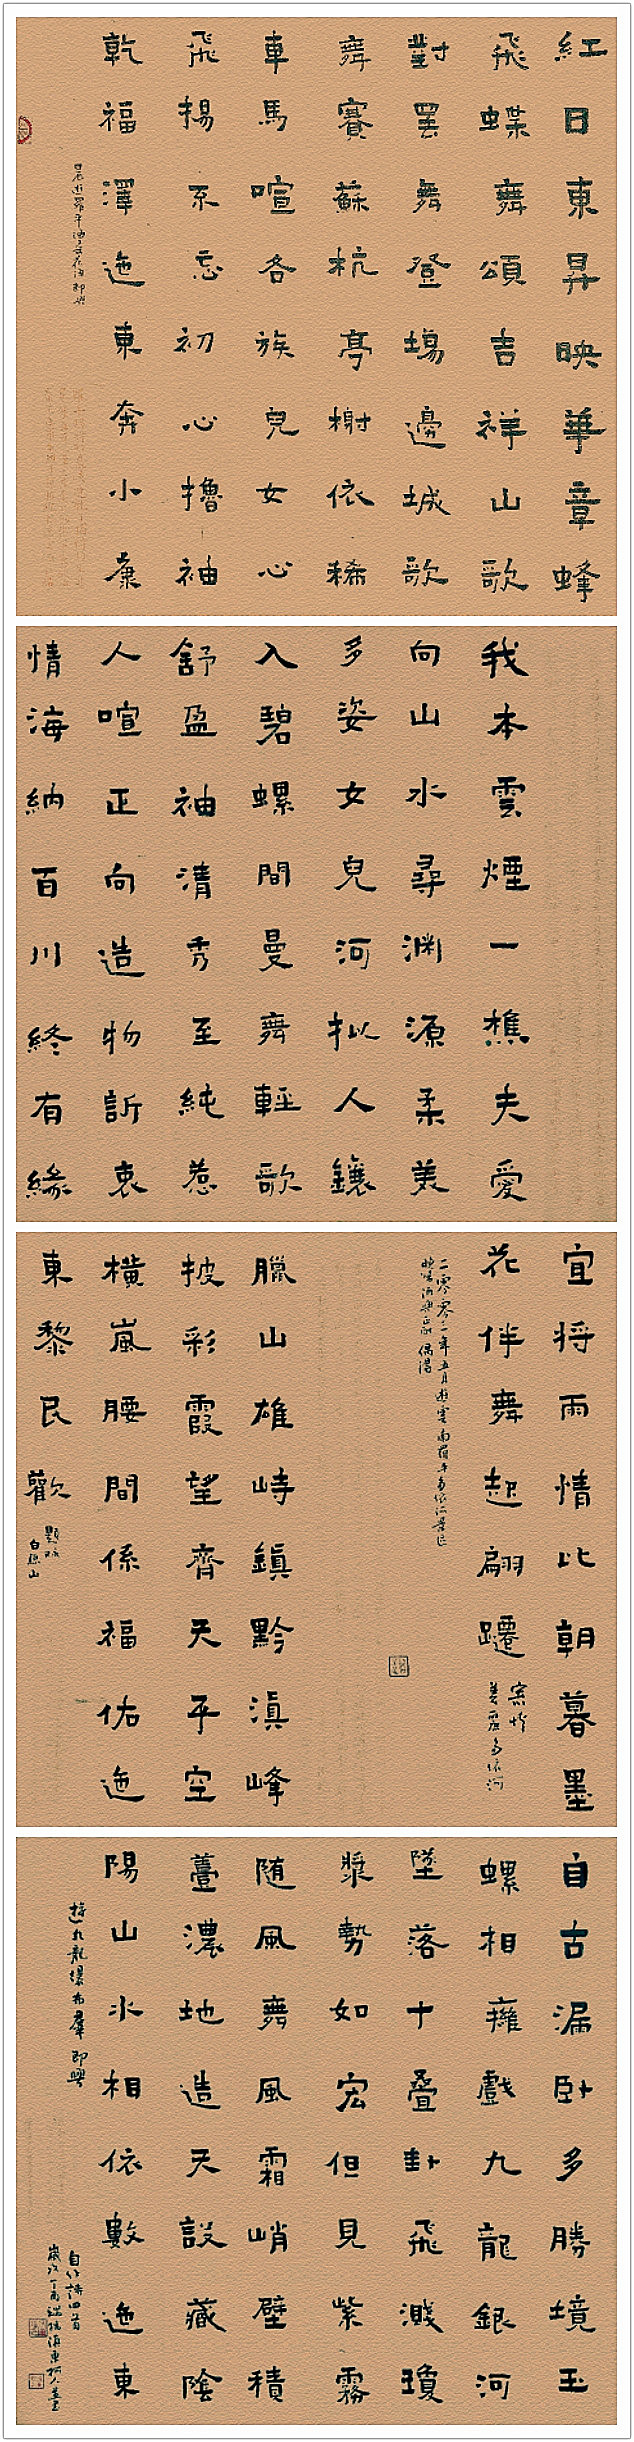 紅日東昇映華章蜂
飛蝶舞頌吉祥山歌
對罢舞登場邊城歌
舞賽蘇杭亭榭依稀
車馬喧各族兒女心
飛揚不忘初心擼袖
乾福澤迤東奔小康
我本雲煙一樵夫愛
向山水尋渊源柔美
多姿女兒河拟人鑲
入碧螺間曼舞輕歌
舒盈袖清秀至純惹
人喧正向造物訴衷
情海納百川終有緣
宜将雨情比朝暮墨
花伴舞起翩躚
臘山雄峙鎮黔滇峰
披彩霞望齊天平空
横嵐腰間係福佑迤
東黎民歡
白臘山
自古漏卧多勝境玉
螺相擁戲九龍銀河
墜落十叠卦飛濺瓊
漿勢如宏但見紫霧
随風舞風霜峭壁積
薹濃地造天設藏陰
陽山水相依數迤東
遊九龍瀑布羣即興
自作詩四首